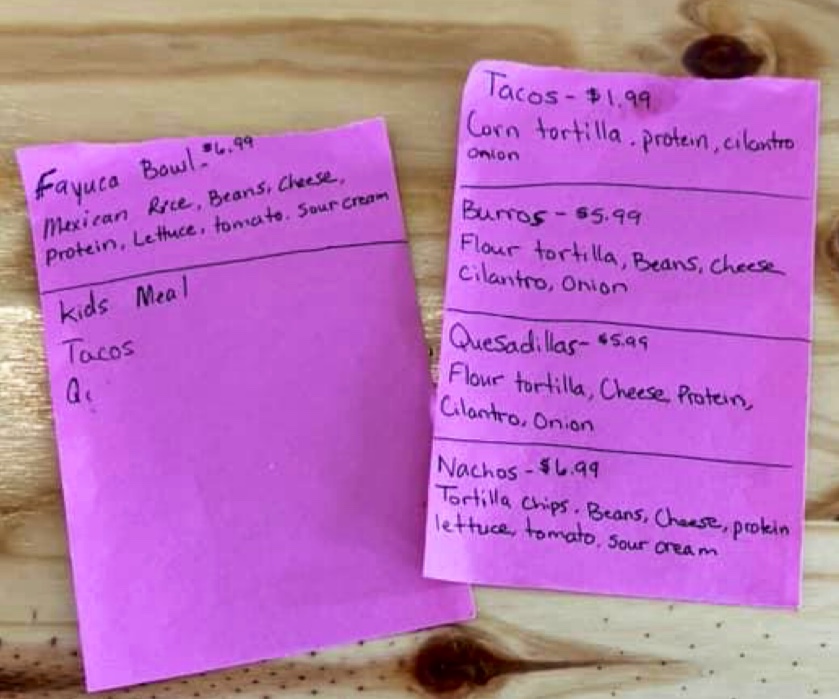 Fayuca Bowl - $6.99
Mexican Rice, Beans, Cheese,
Protein, Lettuce, tomato. Sour cream
Kids Meal
Tacos
Tacos - $1.99
Corn tortilla. protein, cilantro
onion
Burros - $5.99
Flour tortilla, Beans, Cheese
Cilantro, Onion
Quesadillas - $5.99
Flour tortilla, Cheese Protein,
Cilantro, Onion
Nachos - $6.99
Tortilla chips. Beans, Cheese, protein
lettuce, tomato. Sour cream